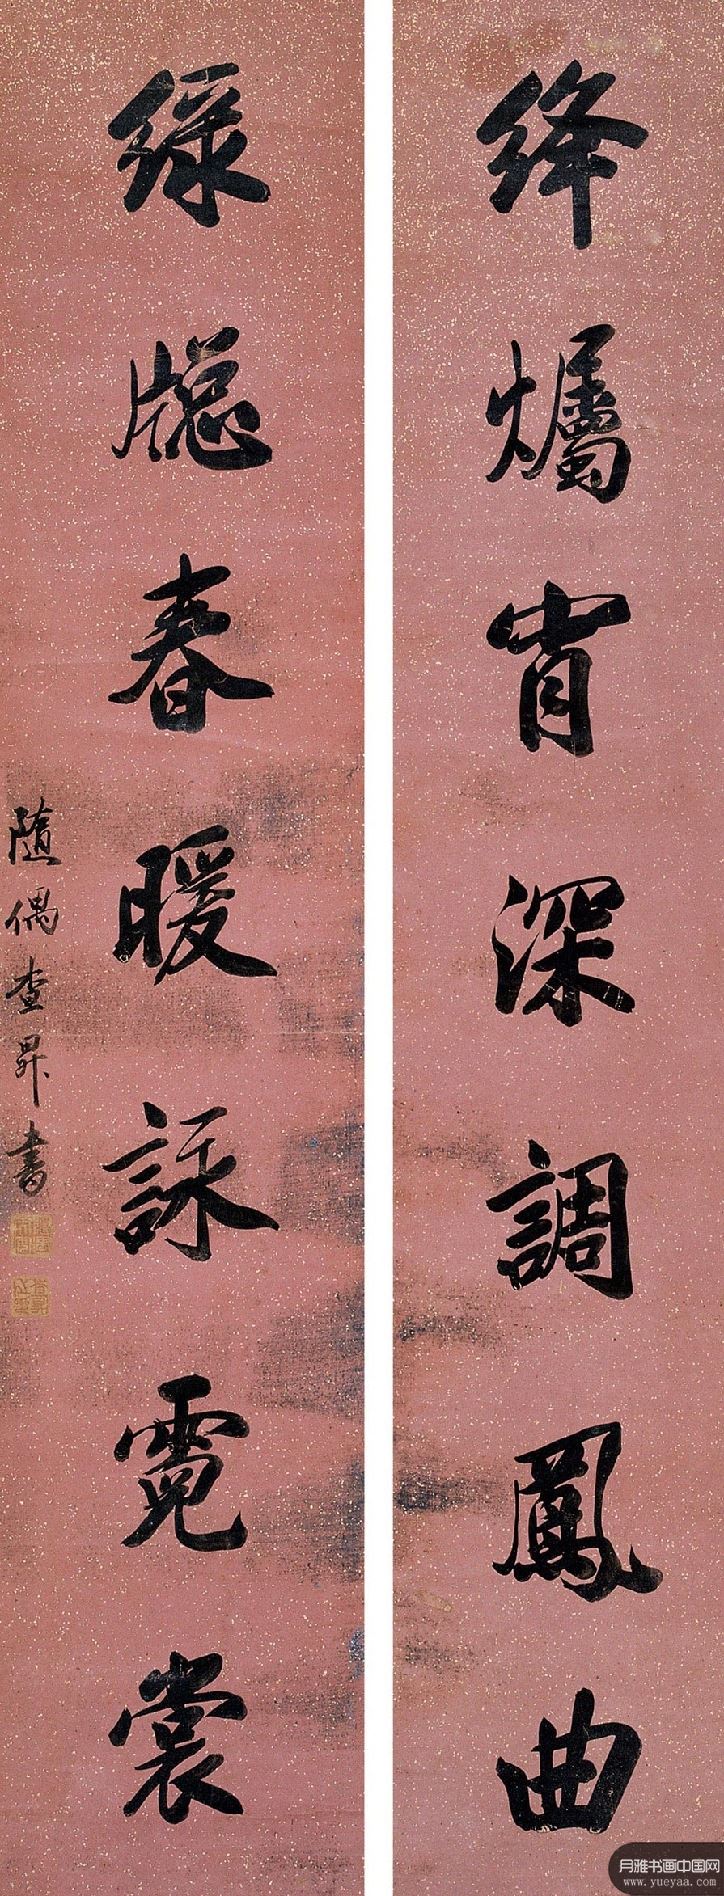 绛爥宵深調鳳曲
緑牕春暖詠霓裳
随偶查昇書
月雅书画中国网
www.yueyaa.com